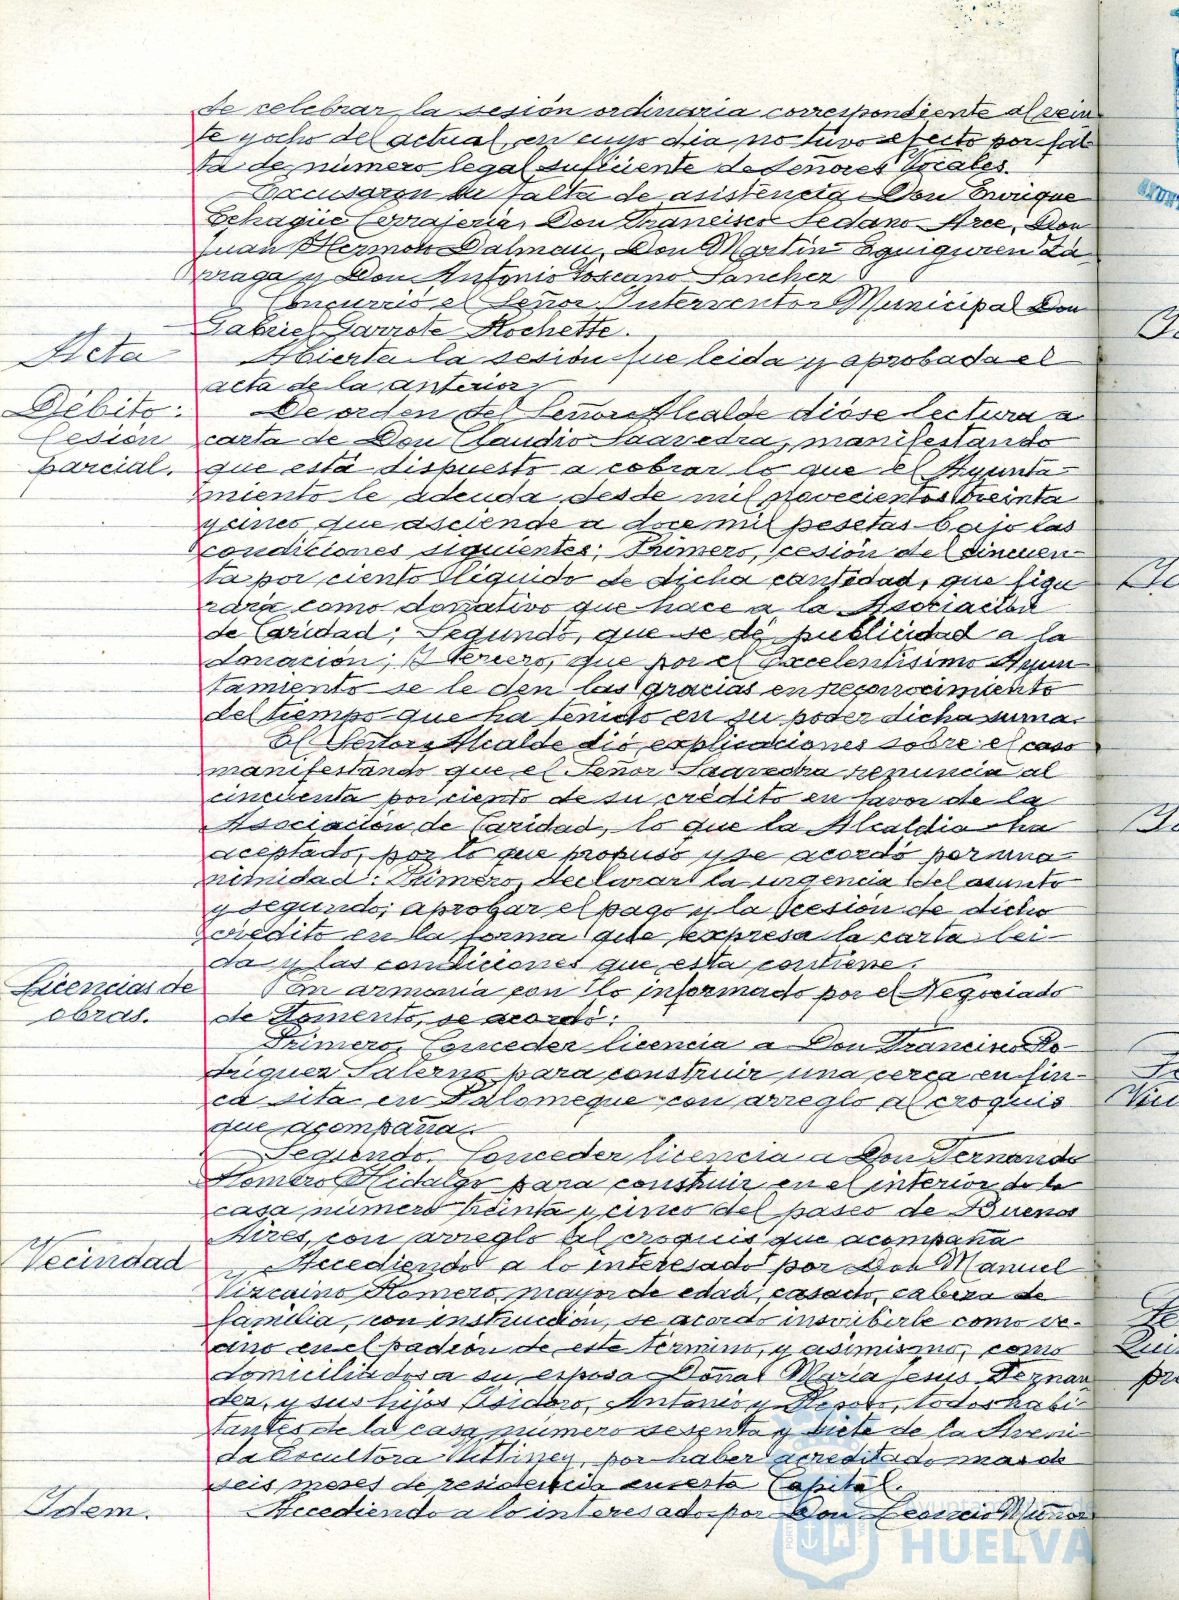 de celebrar la sesión ordinaria correspondiente al vein
te y ocho del actual, en cuyo dia no tuvo efecto por fal
ta de número legal suficiente de Señores Vocales.
Excusaron su falta de asistencia Don Enrique
Echagüe Cerrajería, Don Francisco Sedano Arce, Don
Juan Hermon Dalmau, Don Martín Eguiguren La
rraga y Don Antonio Toscano Sanchez
Concurrió el Señor Interventor Municipal Don
Gabriel Garrote Rochette.
Acta
Abierta la sesión fue leida y aprobada el
acta de la anterior
Débito:
Cesión
parcial.
De orden del Señor Alcalde dióse lectura a
carta de Don Claudio Saavedra, manifestando
que está dispuesto a cobrar lo que el Ayunta-
miento le adeuda desde mil novecientos treinta
y cinco que asciende a doce mil pesetas bajo las
condiciones siguientes; Primero, cesión del cincuen-
ta por ciento líquido de dicha cantidad, que figu
rará como donativo que hace a la Asociación
de Caridad; Segundo, que se dé publicidad a la
donación; y tercero, que por el Excelentísimo Ayun
tamiento se le den las gracias en reconocimiento
del tiempo que ha tenido en su poder dicha suma.
El Señor Alcalde dió explicaciones sobre el caso
manifestando que el Señor Saavedra renuncia al
cincuenta por ciento de su crédito en favor de la
Asociación de Caridad, lo que la Alcaldia ha
aceptado, por lo que propuso y se acordó por una
nimidad: Primero, declarar la urgencia del asunto
y segundo; aprobar el pago y la cesión de dicho
crédito en la forma que expresa la carta lei-
da y las condiciones que esta contiene.
Licencias de
obras.
En armonía con lo informado por el Negociado
de Fomento, se acordó:
Primero, Conceder licencia a Don Francisco Ro-
dríguez Salerno para construir una cerca en fin-
ca sita en Palomeque con arreglo al croquis
que acompaña.
Segundo, Conceder licencia a Don Fernando
Romero Hidalgo para construir en el interior de la
casa número treinta y cinco del paseo de Buenos
Aires, con arreglo al croquis que acompaña
Vecindad
Accediendo a lo interesado por Don Manuel
Vizcaino Romero, mayor de edad, casado, cabeza de
familia, con instrucción, se acordó inscribirle como ve-
cino en el padrón de este término, y asimismo, como
domiciliados a su esposa Doña María Jesus Fernan
dez, y sus hijos Isidoro, Antonio y todos habi-
tantes de la casa número sesenta y siete de la Aveni
da Escultora Whitney, por haber acreditado mas de
seis meses de residencia en esta Capital.
Idem.
Accediendo a lo interesado por Don Leoncio Muñoz
Ayuntamiento de
HUELVA